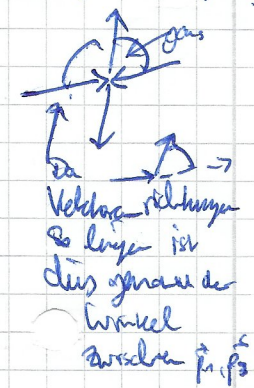 Da
Vektoren richtungen
So liegen ist
dies genau der
Winkel
zwischen p₁, p₃